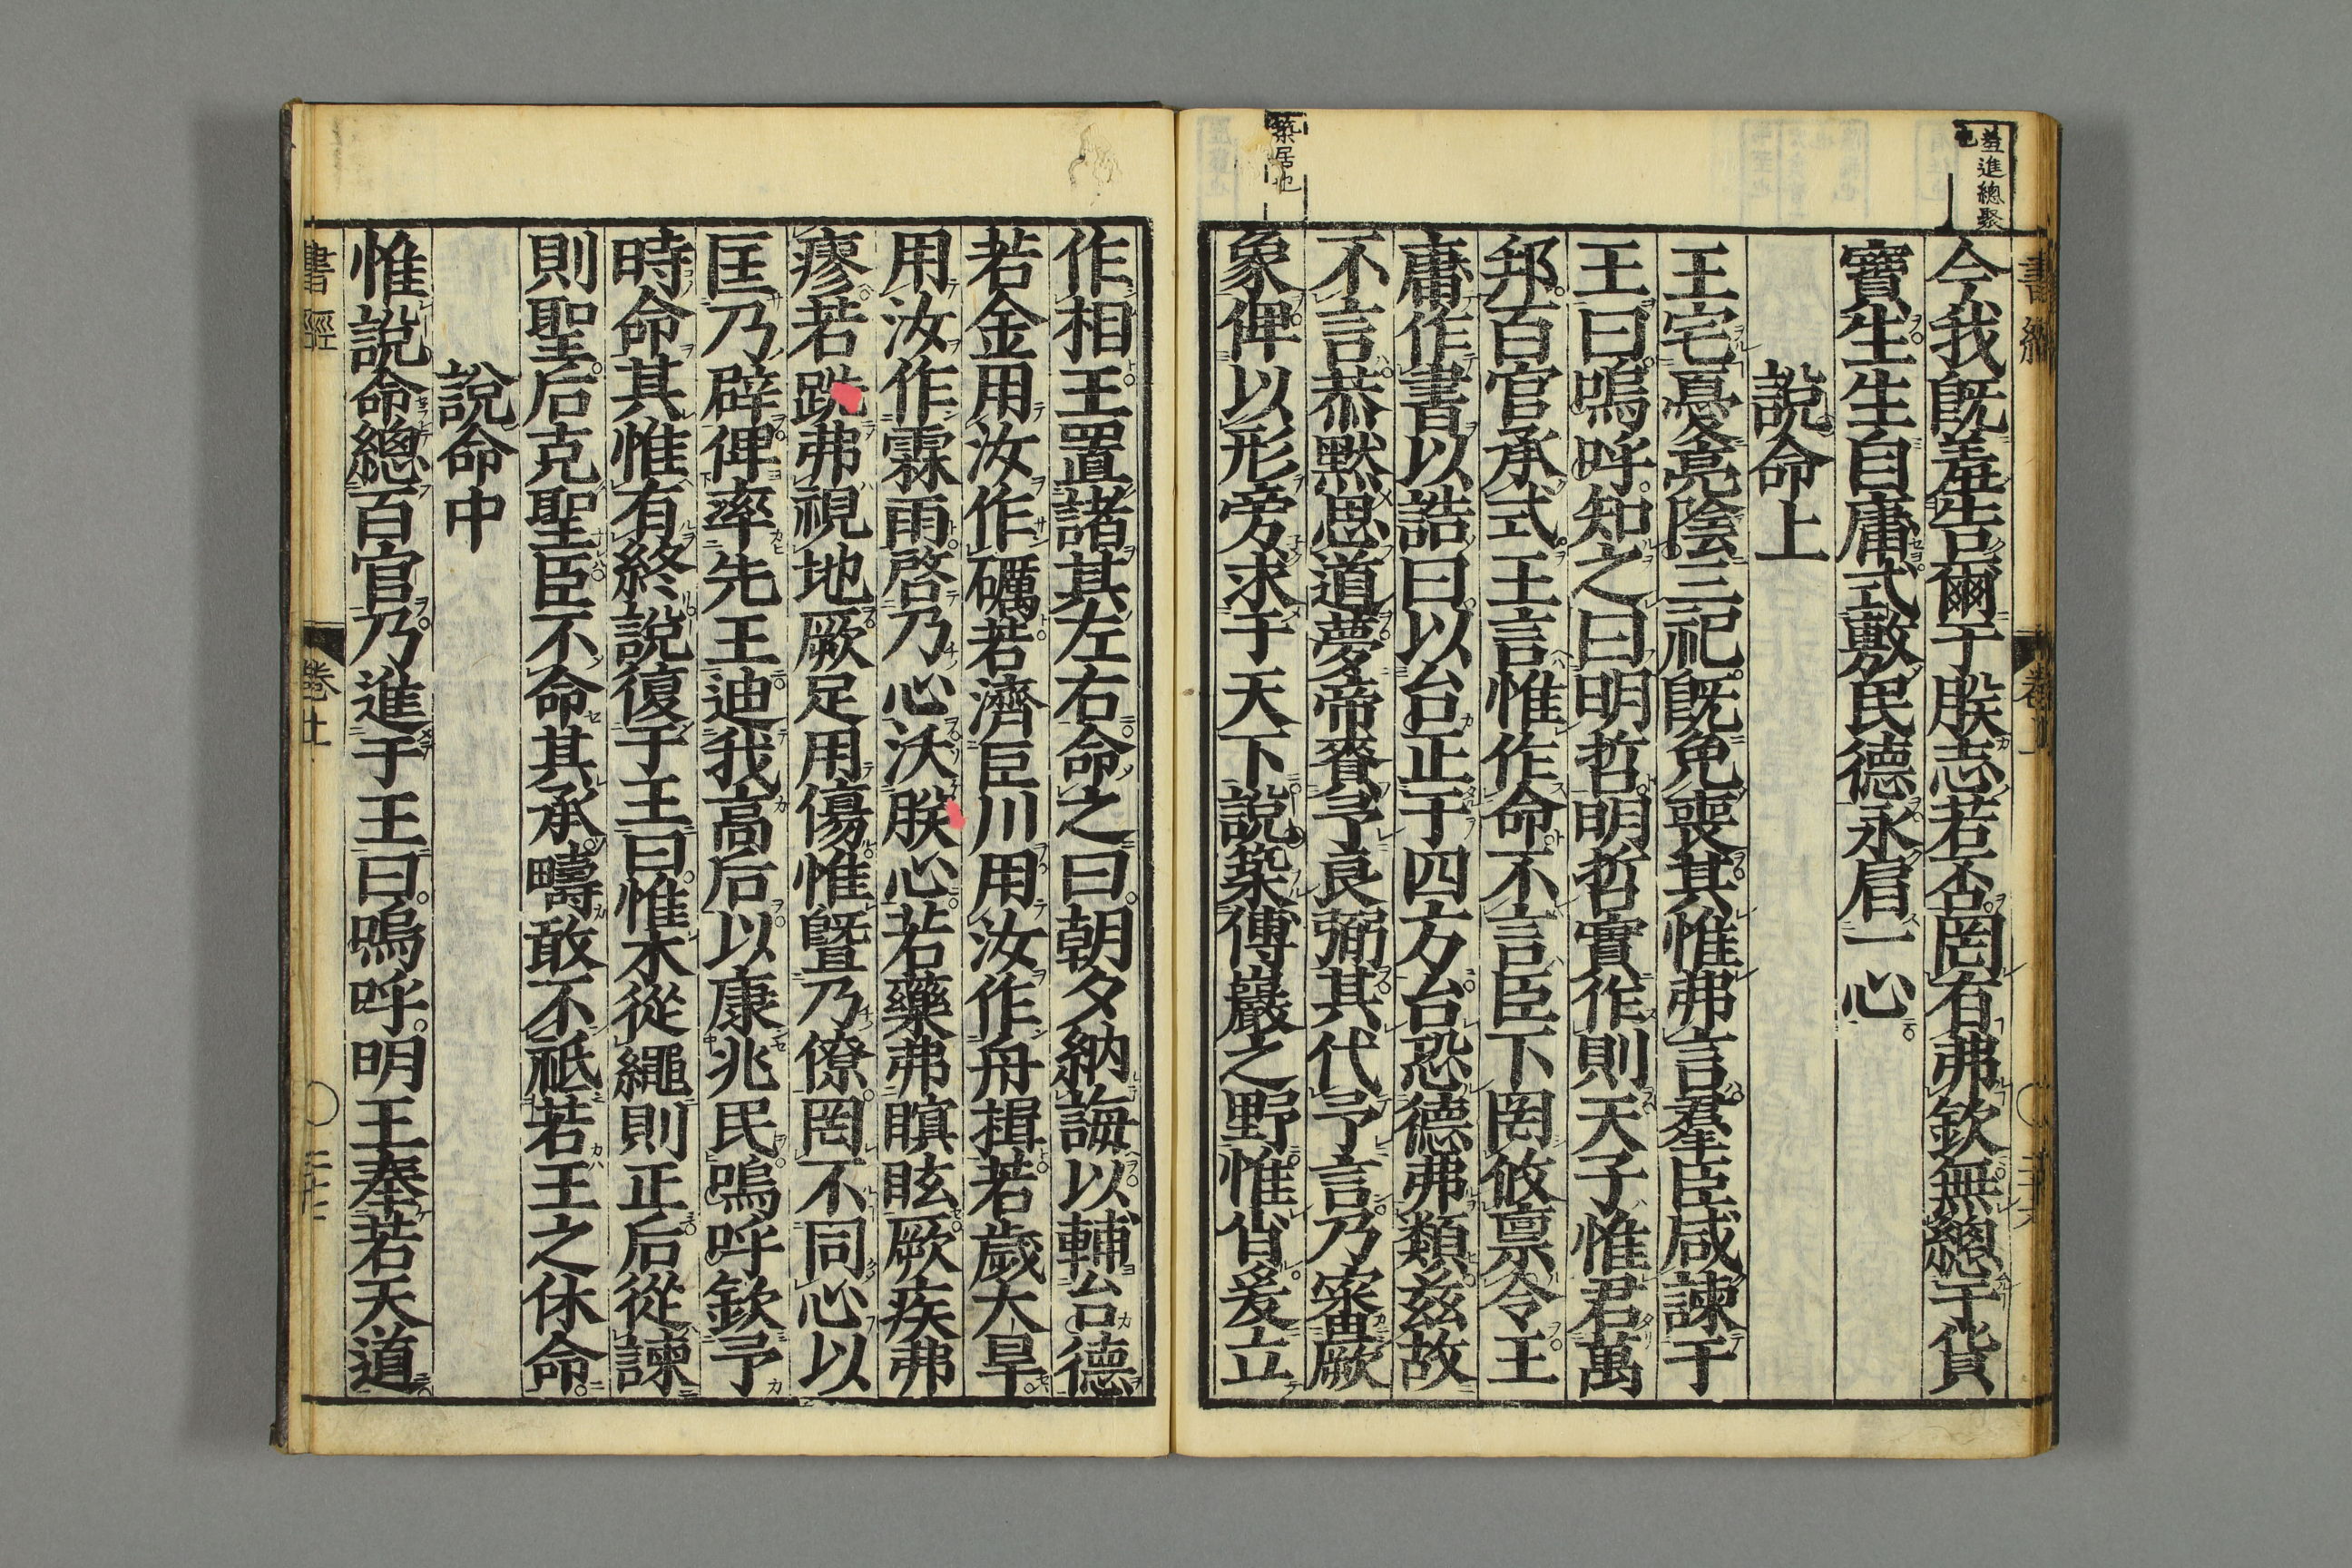 羞進總聚
也
今我既羞告爾于朕志若否罔有弗欽無總于貨
寶生生自庸式敷民德永肩一心
說命上
王宅憂亮陰三祀既免喪其惟弗言羣臣咸諫于
王曰嗚呼知之曰明哲明哲實作則天子惟君萬
邦百官承式王言惟作命不言臣下罔攸禀令王
庸作書以誥曰以台正于四方台恐德弗類茲故
不言恭默思道夢帝賚予良弼其代予言乃審厥
象俾以形旁求于天下說築傅巖之野惟肖爰立
築居也
作相王置諸其左右命之曰朝夕納誨以輔台德
若金用汝作礪若濟巨川用汝作舟楫若歲大旱
用汝作霖雨啓乃心沃朕心若藥弗瞑眩厥疾弗
瘳若跣弗視地厥足用傷惟暨乃僚罔不同心以
匡乃辟俾率先王迪我高后以康兆民嗚呼欽予
時命其惟有終說復于王曰惟木從繩則正后從諫
則聖后克聖臣不命其承疇敢不祗若王之休命
說命中
惟說命總百官乃進于王曰嗚呼明王奉若天道
書經